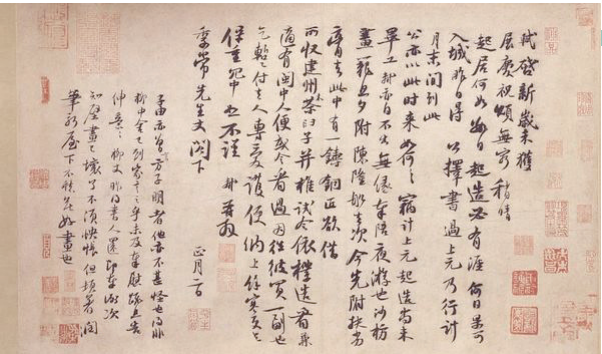 軾啟新歲未獲
展慶祝頌無窮稍晴
起居何如數日起造必有涯何日果可
入城昨日得公擇書過上元乃行計
月末間到此
公亦以此時來如何々竊計上元起造尚未
畢工軾亦自不出無緣奉陪夜遊也沙枋
畫籠旦夕附陳隆船去次今先附扶劣
膏去此中有一鑄銅匠欲借
所收建州木茶臼子并椎試令依樣造看兼
適有閩中人便或令看過因往彼買一副也
乞暫付去人專愛護便納上餘寒更乞
保重冗中恕不謹軾再拜
季常先生丈閣下
正月二日
子由亦曾言方子明者他亦不甚怪也得非
柳中舍已到家言之乎未及奉慰疏且告
伸意々柳丈昨得書人還即奉謝次
知壁畫已壞了不須怏悵但頓著潤
筆新屋下不愁無好畫也